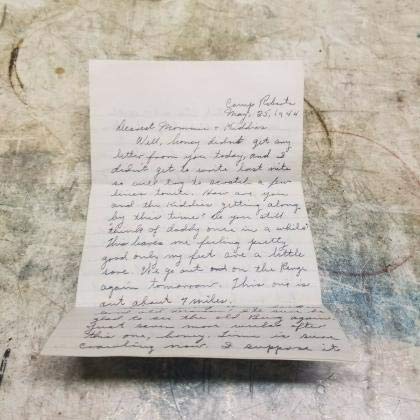 Camp Roberts
May, 25, 1944
Dearest Mommie + Kiddies
Well, honey didn't get any
letter from you today, and I
didn't get to write last nite
so will try to scratch a few
lines tonite. How are you
and the Kiddies getting along
by this time? Do you still
think of daddy once in a while?
This leaves me feeling pretty
good only my feet are a little
sore. We go out on the Range
again tomorrow. This one is
out about 7 miles.
glad to see the old thing again
Just seven more weeks after
this one, honey. Time is sure
now. I suppose it